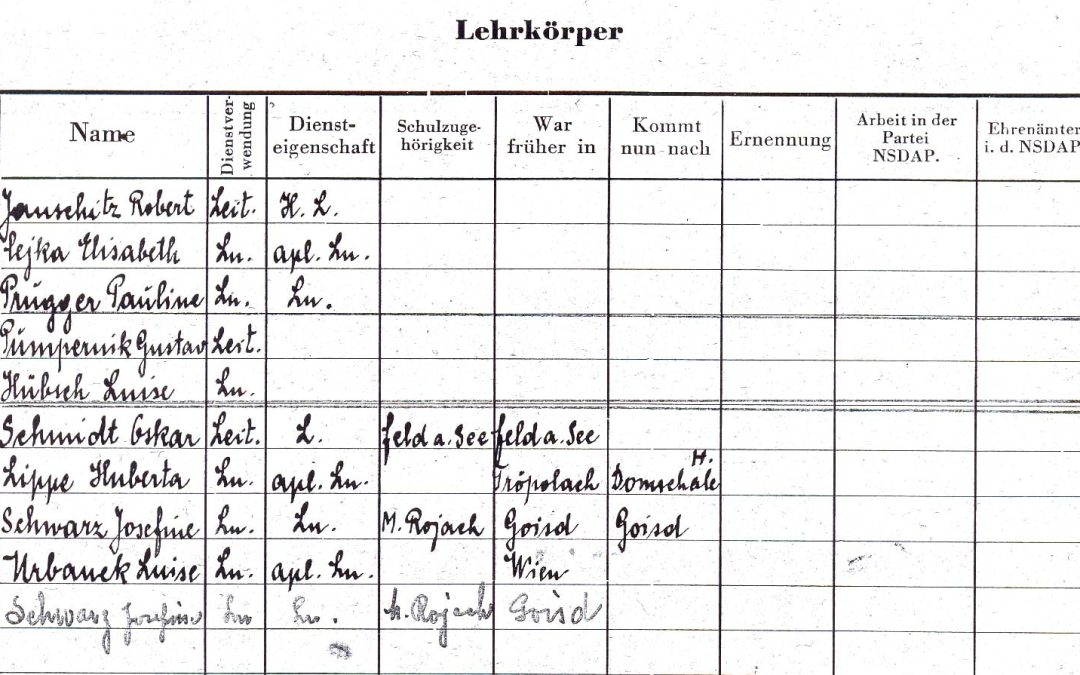 Lehrkörper
Name Dienstver-wendung Dienst-eigenschaft Schulzuge-hörigkeit War früher in Kommt nun nach Ernennung Arbeit in der Partei NSDAP. Ehrenämter i. d. NSDAP
Jauschitz Robert Leit. H. L.
Elisabeth Ln. apl. Ln.
Prugger Pauline Ln. Ln.
Pumpernik Gustav Leit.
Hübsch Luise Ln.
Schmidt Oskar Leit. L. Feld a. See Feld a. See
Lippe Huberta Ln. apl. Ln. Tröpolach H.
Schwarz Josefine Ln. Ln. M. Rojach Goisd Goisd
Urbanek Luise Ln. apl. Ln. Wien
Schwarz Josefine Ln Ln. M. Rojach Goisd